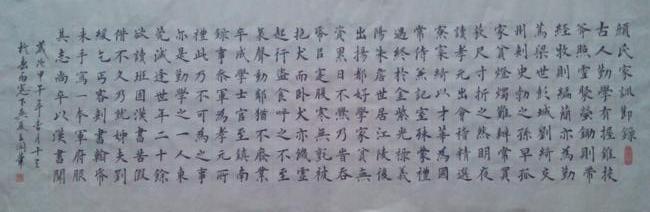 顏氏家訓節錄
古人勤學有握錐投
斧照雪聚螢鋤則帶
經牧則編簡亦為勤
篤梁世彭城劉綺交
州刺史勃之孫早孤
家貧燈燭難辦常買
荻尺寸折之然明夜
讀孝元出會稽精選
寮寀綺以才華為國
常侍兼記室殊蒙禮
遇終於金紫光祿義
陽朱詹世居江陵後
出揚都好學家貧無
資累日不爨乃時吞
帋實腹寒無氈被
抱犬而臥犬亦饑虛
起行盜食呼之不至
哀聲動鄰猶不廢業
卒成學士官至鎮南
錄事參軍為孝元所
禮此乃不可為之事
亦是勤學之一人東
莞臧逢世年二十餘
欲讀班固漢書苦假
借不久乃就姊夫劉
緩乞丐客刺書翰帋
末手寫一本軍府服
其志尚卒以漢書聞
歲次甲午年月十三
於